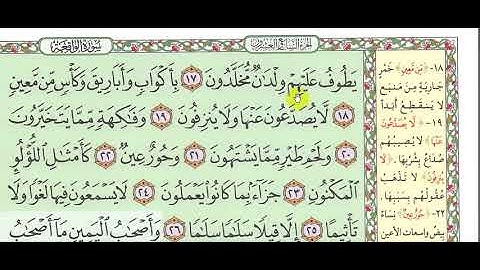 الجزء السابع والعشرون
سورة الواقعة
يَطُوفُ عَلَيْهِمْ وِلْدَٰنٌ مُّخَلَّدُونَ ١٧ بِأَكْوَابٍ وَأَبَارِيقَ وَكَأْسٍ مِّن مَّعِينٍ
١٨ لَّا يُصَدَّعُونَ عَنْهَا وَلَا يُنزِفُونَ ١٩ وَفَٰكِهَةٍ مِّمَّا يَتَخَيَّرُونَ
٢٠ وَلَحْمِ طَيْرٍ مِّمَّا يَشْتَهُونَ ٢١ وَحُورٌ عِينٌ ٢٢ كَأَمْثَٰلِ ٱللُّؤْلُؤِ
ٱلْمَكْنُونِ ٢٣ جَزَآءًۢ بِمَا كَانُوا۟ يَعْمَلُونَ ٢٤ لَا يَسْمَعُونَ فِيهَا لَغْوًا وَلَا
تَأْثِيمًا ٢٥ إِلَّا قِيلًا سَلَٰمًا سَلَٰمًا ٢٦ وَأَصْحَٰبُ ٱلْيَمِينِ مَآ أَصْحَٰبُ
١٨- ﴿مِّن مَّعِينٍ﴾ خَمْرٍ
جَارِيَةٍ مِنْ مَنْبَعٍ
لَا يَنْقَطِعُ أَبَدًا
١٩- ﴿لَّا يُصَدَّعُونَ
عَنْهَا﴾ لَا يُصِيبُهُمْ
صُدَاعٌ بِشُرْبِهَا. ﴿لَا
يُنزِفُونَ﴾ لَا تَذْهَبُ
عُقُولُهُمْ بِسَبَبِهَا.
٢٢- ﴿حُورٌ عِينٌ﴾ نِسَاءٌ
بِيضٌ وَاسِعَاتُ الأَعْيُنِ